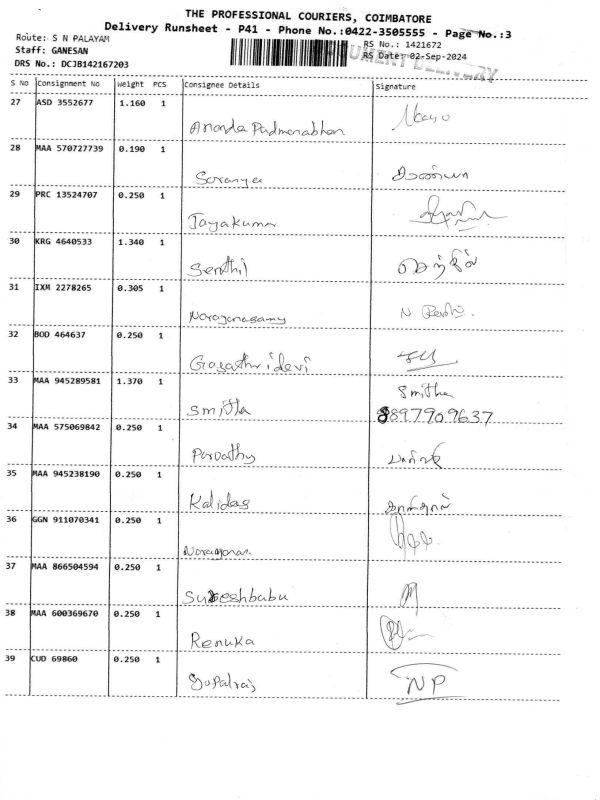 THE PROFESSIONAL COURIERS, COIMBATORE
Delivery Runsheet - P41 - Phone No.:0422-3505555 - Page No.:3
Route: S N PALAYAM
RS No.: 1421672
Staff: GANESAN
RS Date: 02-Sep-2024
DRS No.: DCJB142167203
S No Consignment No Weight PCS Consignee Details Signature
27 ASD 3552677 1.160 1
Ananda Padmanabhan
28 MAA 570727739 0.190 1
Saranya சரண்யா
29 PRC 13524707 0.250 1
Jayakumar
30 KRG 4640533 1.340 1
Senthil செந்தில்
31 IXM 2278265 0.305 1
Narayanasamy
32 BOD 464637 0.250 1
Gayathridevi
33 MAA 945289581 1.370 1
Smitha
Smitha 8897909637
34 MAA 575069842 0.250 1
Parvathy
35 MAA 945238190 0.250 1
Kalidas காளிதாஸ்
36 GGN 911070341 0.250 1
Narayanan
37 MAA 866504594 0.250 1
Sureshbabu
38 MAA 600369670 0.250 1
Renuka
39 CUD 69860 0.250 1
Gopalraj NP